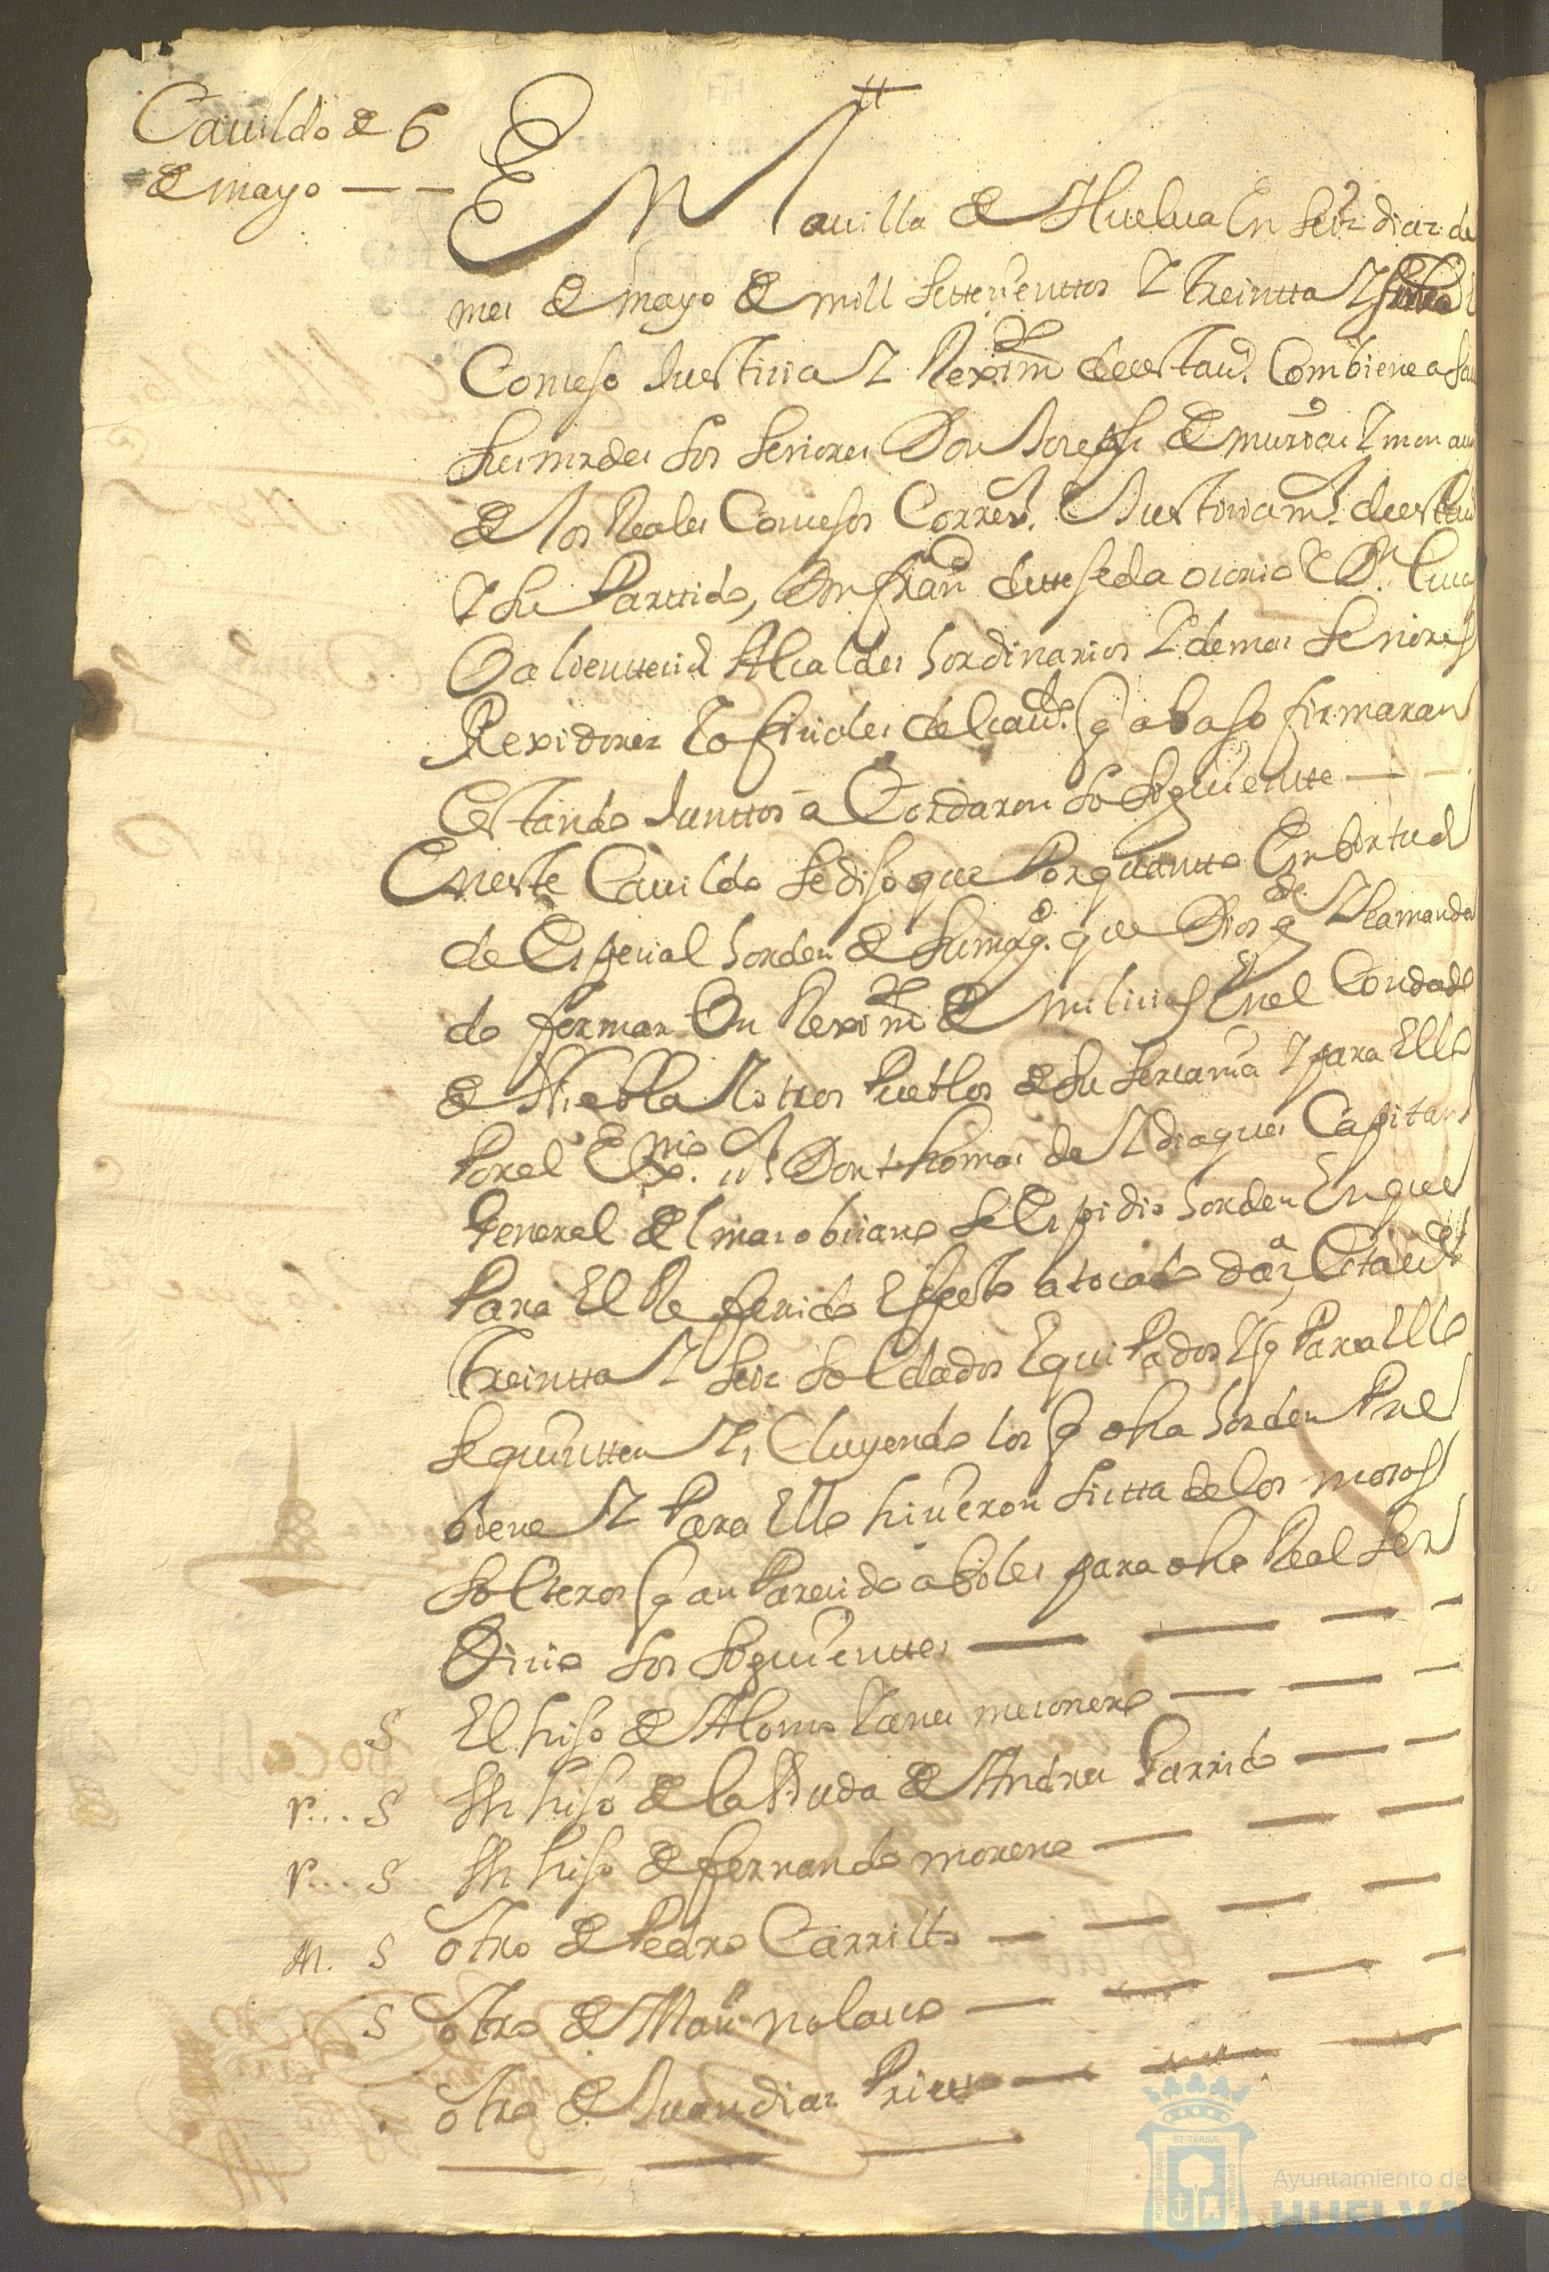 Cauildo de 6
de mayo — —
En la uilla de Huelua En seis dias de
mes de mayo de mill settecienttos Y treintta Y
Consejo Justicia Y Reximto deesta uª. Combiene a saue
sus mrdes los señores Don Joseph de
de los Reales Consejos Correxr. Justicia mr. deesta uª
Y su Parttido, Don fran de Useda osorio Y Dn. Lucas
Alcaldes hordinarios Y demas señores
Rexidores Y ofiziales del caudo. q abaso firmaran
Estando Junttos aCordaron lo siguientte — —
Eneste Cauildo se diso que Por quantto En birtud
de Espesial horden de su magd. que Dios gde Y la manda
do formar Un Reximto de milicias Enel Condado
de Niebla Y otros Pueblos de su sercania Y para Ello
Por el Exmo. sr. Don thomas de Ydiaques Capitan
General del mar osiano se Espidio horden En que
Para El Refferido Effecto a tocado dar a Esta uª
treintta Y seis soldados Equipados Y q Para Ello
se quintten Y, Cluyendo los q dha horden Pre
biene Y Para Ello hisieron Listta de los mosos
solteros q an Paresido abiles para dho Real ser
Visio los siguienttes — — —
S El hijo de Alonso Yanes mesonero — — —
r... S Un hijo de la Biuda de Andres Garrido — —
r... S Un hijo de fernando moreno — — —
m. S otro de Pedro Carrillo — — — —
S otro de Man. Nolasco — — — —
. otro de Juan dias Prietto — — —
Ayuntamiento de
HUELVA